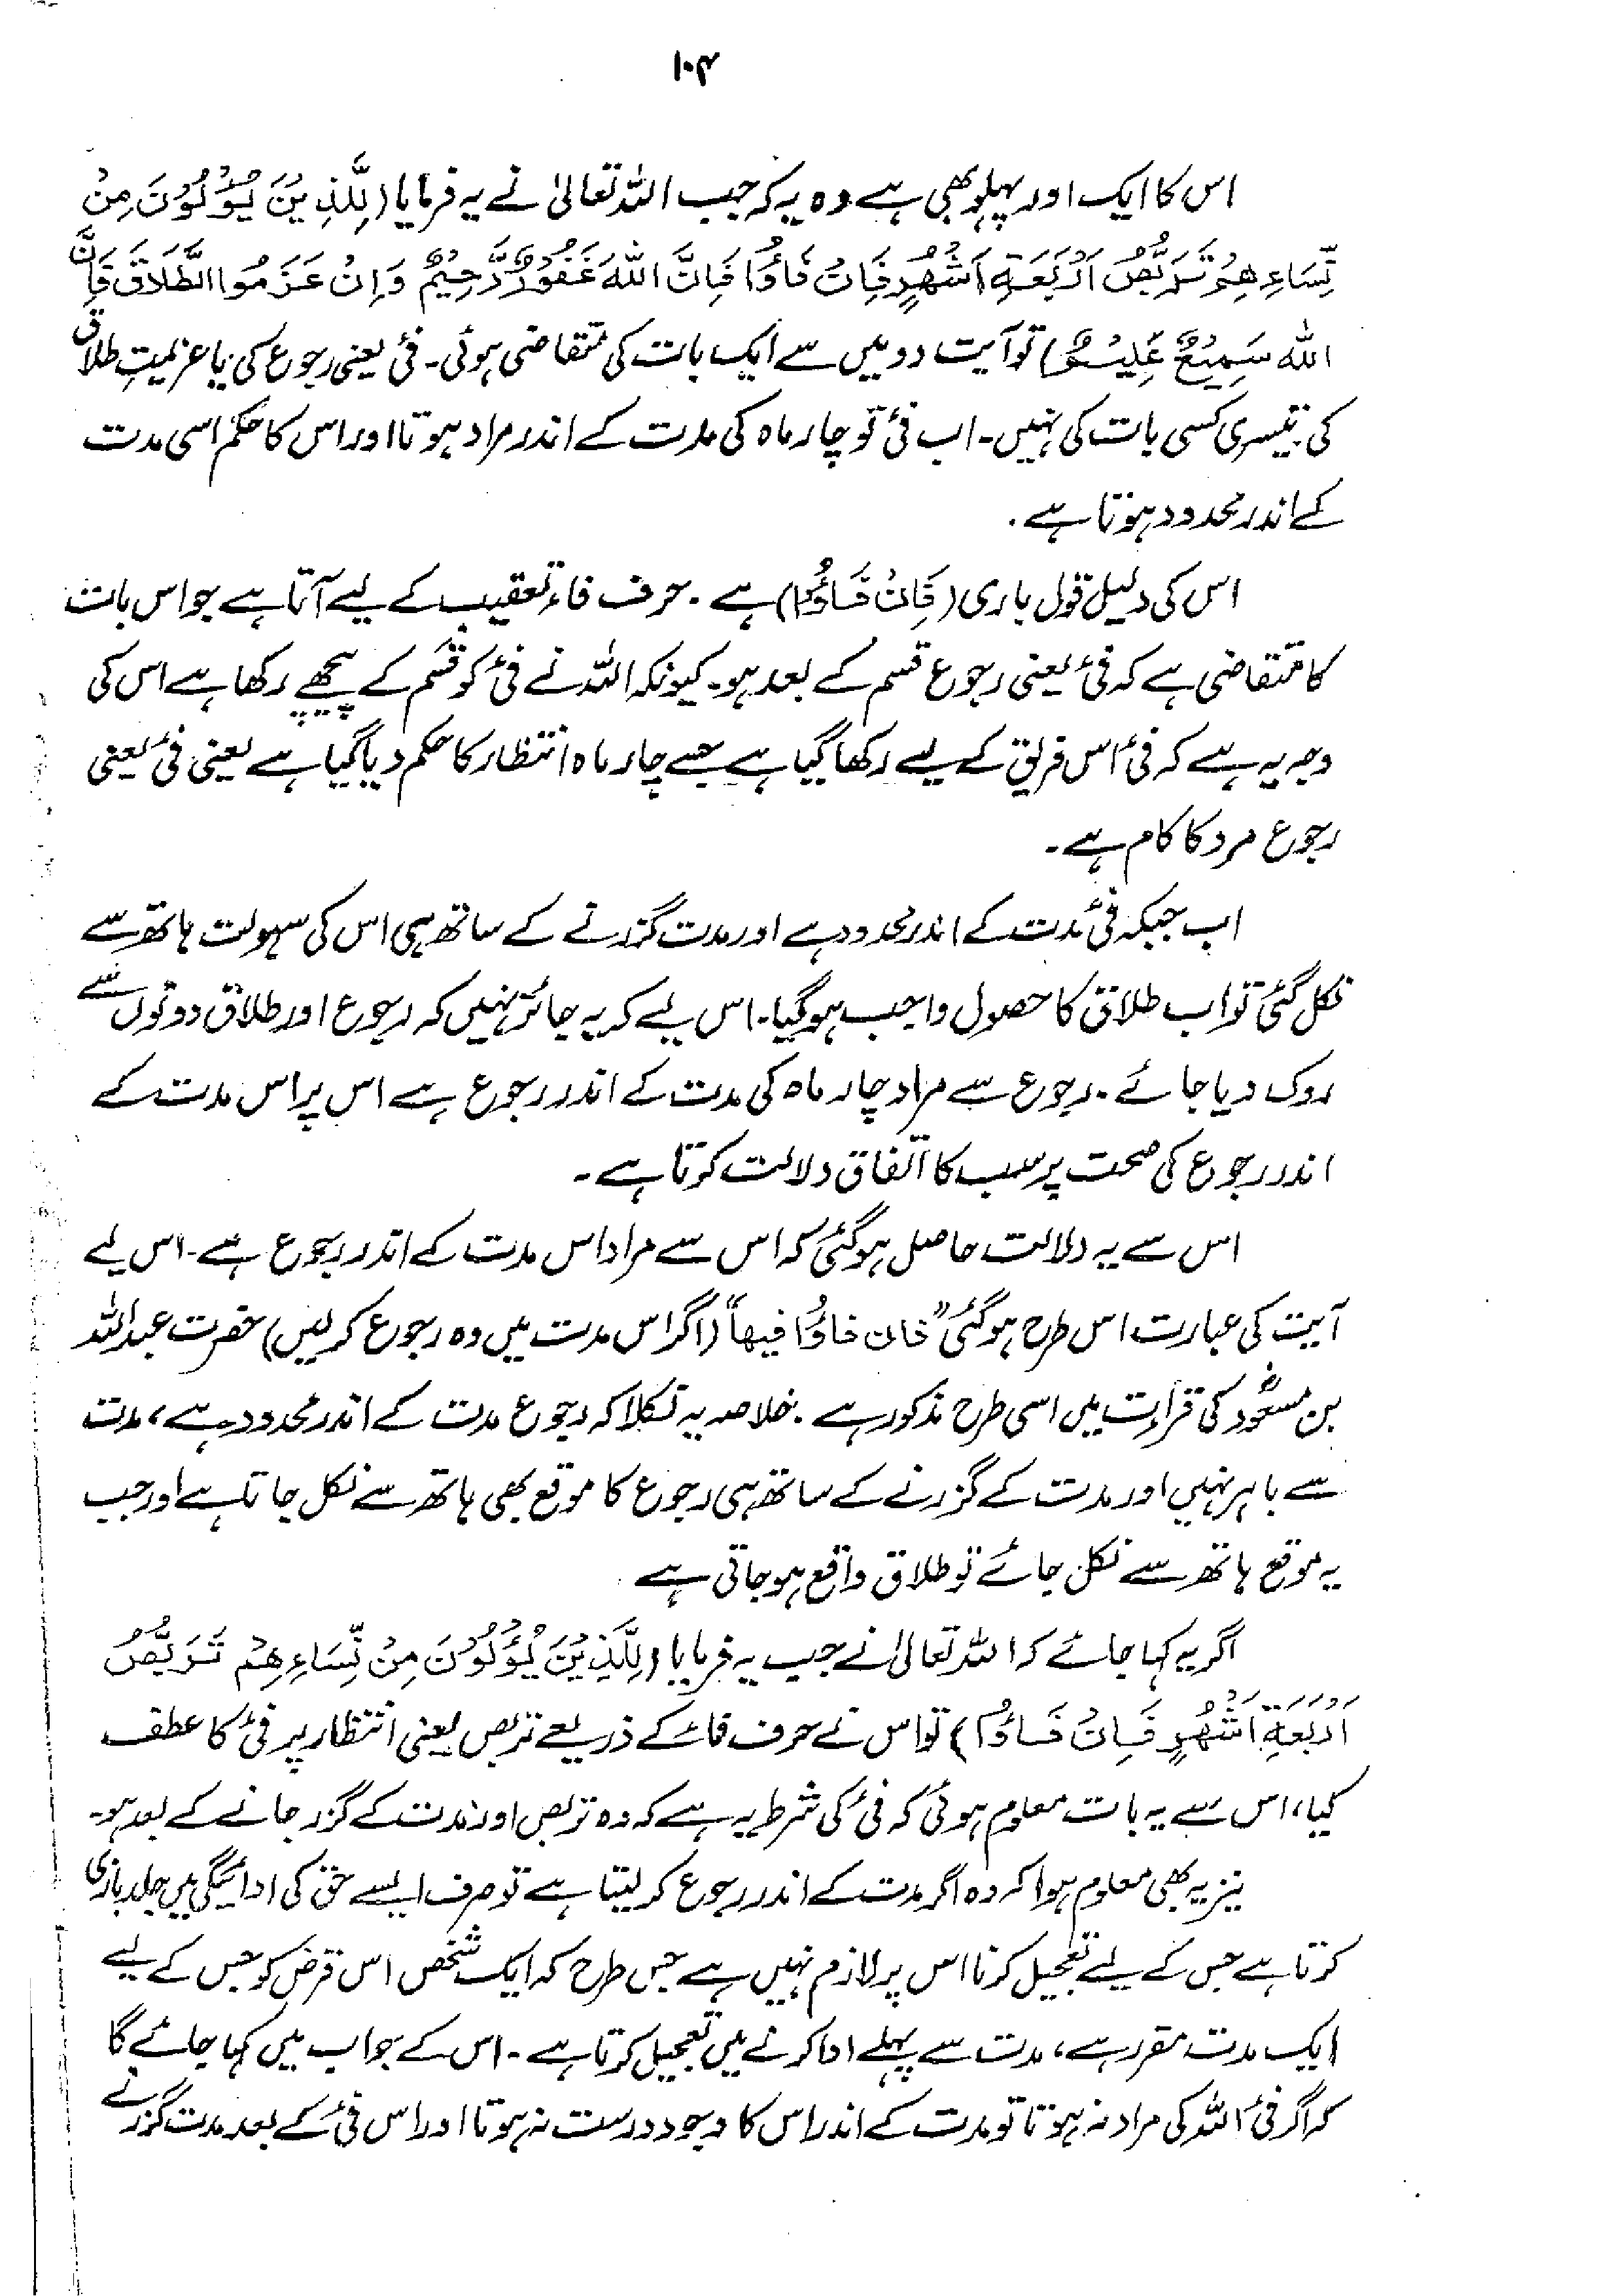 ۱۰۴
اس کا ایک اور پہلو بھی ہے وہ یہ کہ جب اللہ تعالیٰ نے یہ فرمایا (لِلَّذِیْنَ یُؤْلُوْنَ مِنْ
نِّسَاءِ هِمْ تَرَبُّصُ اَرْبَعَةِ اَشْهُرٍ فَاِنْ فَاءُوْا فَاِنَّ اللهَ غَفُوْرٌ رَّحِیْمٌ وَاِنْ عَزَمُوا الطَّلَاقَ فَاِنَّ
اللهَ سَمِیْعٌ عَلِیْمٌ) تو آیت دو میں سے ایک بات کی متقاضی ہوئی۔ فئ یعنی رجوع کی یا عزیمتِ طلاق
کی تیسری کسی بات کی نہیں۔ اب فئ تو چار ماہ کی مدت کے اندر مراد ہوتا اور اس کا حکم اسی مدت
کے اندر محدود ہوتا ہے۔
اس کی دلیل قول باری (فَاِنْ فَاءُوْا) ہے۔ حرف فاء تعقیب کے لیے آتا ہے جو اس بات
کا متقاضی ہے کہ فئ یعنی رجوع قسم کے بعد ہو۔ کیونکہ اللہ نے فئ کو قسم کے پیچھے رکھا ہے اس کی
وجہ یہ ہے کہ فئ اس فریق کے لیے رکھا گیا ہے جسے چار ماہ انتظار کا حکم دیا گیا ہے یعنی فئ یعنی
رجوع مرد کا کام ہے۔
اب جبکہ فئ مدت کے اندر محدود ہے اور مدت گزرنے کے ساتھ ہی اس کی سہولت ہاتھ سے
نکل گئی تو اب طلاق کا حصول واجب ہو گیا۔ اس لیے کہ یہ جائز نہیں کہ رجوع اور طلاق دونوں سے
روک دیا جائے۔ رجوع سے مراد چار ماہ کی مدت کے اندر رجوع ہے اس پر اس مدت کے
اندر رجوع کی صحت پر سب کا اتفاق دلالت کرتا ہے۔
اس سے یہ دلالت حاصل ہو گئی کہ اس سے مراد اس مدت کے اندر رجوع ہے۔ اس لیے
آیت کی عبارت اس طرح ہو گئی "فان فاءُوا فیھا" (اگر اس مدت میں وہ رجوع کر لیں) حضرت عبداللہ
بن مسعودؓ کی قرأت میں اسی طرح مذکور ہے۔ خلاصہ یہ نکلا کہ رجوع مدت کے اندر محدود ہے، مدت
سے باہر نہیں اور مدت کے گزرنے کے ساتھ ہی رجوع کا موقع بھی ہاتھ سے نکل جاتا ہے اور جب
یہ موقع ہاتھ سے نکل جائے تو طلاق واقع ہو جاتی ہے
اگر یہ کہا جائے کہ اللہ تعالیٰ نے جب یہ فرمایا (لِلَّذِیْنَ یُؤْلُوْنَ مِنْ نِّسَاءِ هِمْ تَرَبُّصُ
اَرْبَعَةِ اَشْهُرٍ فَاِنْ فَاءُوْا) تو اس نے حرف فاء کے ذریعے تربص یعنی انتظار پر فئ کا عطف
کیا، اس سے یہ بات معلوم ہوئی کہ فئ کی شرط یہ ہے کہ وہ تربص اور مدت کے گزر جانے کے بعد ہو۔
نیز یہ بھی معلوم ہوا کہ وہ اگر مدت کے اندر رجوع کر لیتا ہے تو صرف ایسے حق کی ادائیگی میں جلد بازی
کرتا ہے جس کے لیے تعجیل کرنا اس پر لازم نہیں ہے جس طرح کہ ایک شخص اس قرض کو جس کے لیے
ایک مدت مقرر ہے، مدت سے پہلے ادا کرنے میں تعجیل کرتا ہے۔ اس کے جواب میں کہا جائے گا
کہ اگر فئ اللہ کی مراد نہ ہوتا تو مدت کے اندر اس کا وجود درست نہ ہوتا اور اس فئ کے بعد مدت گزرنے